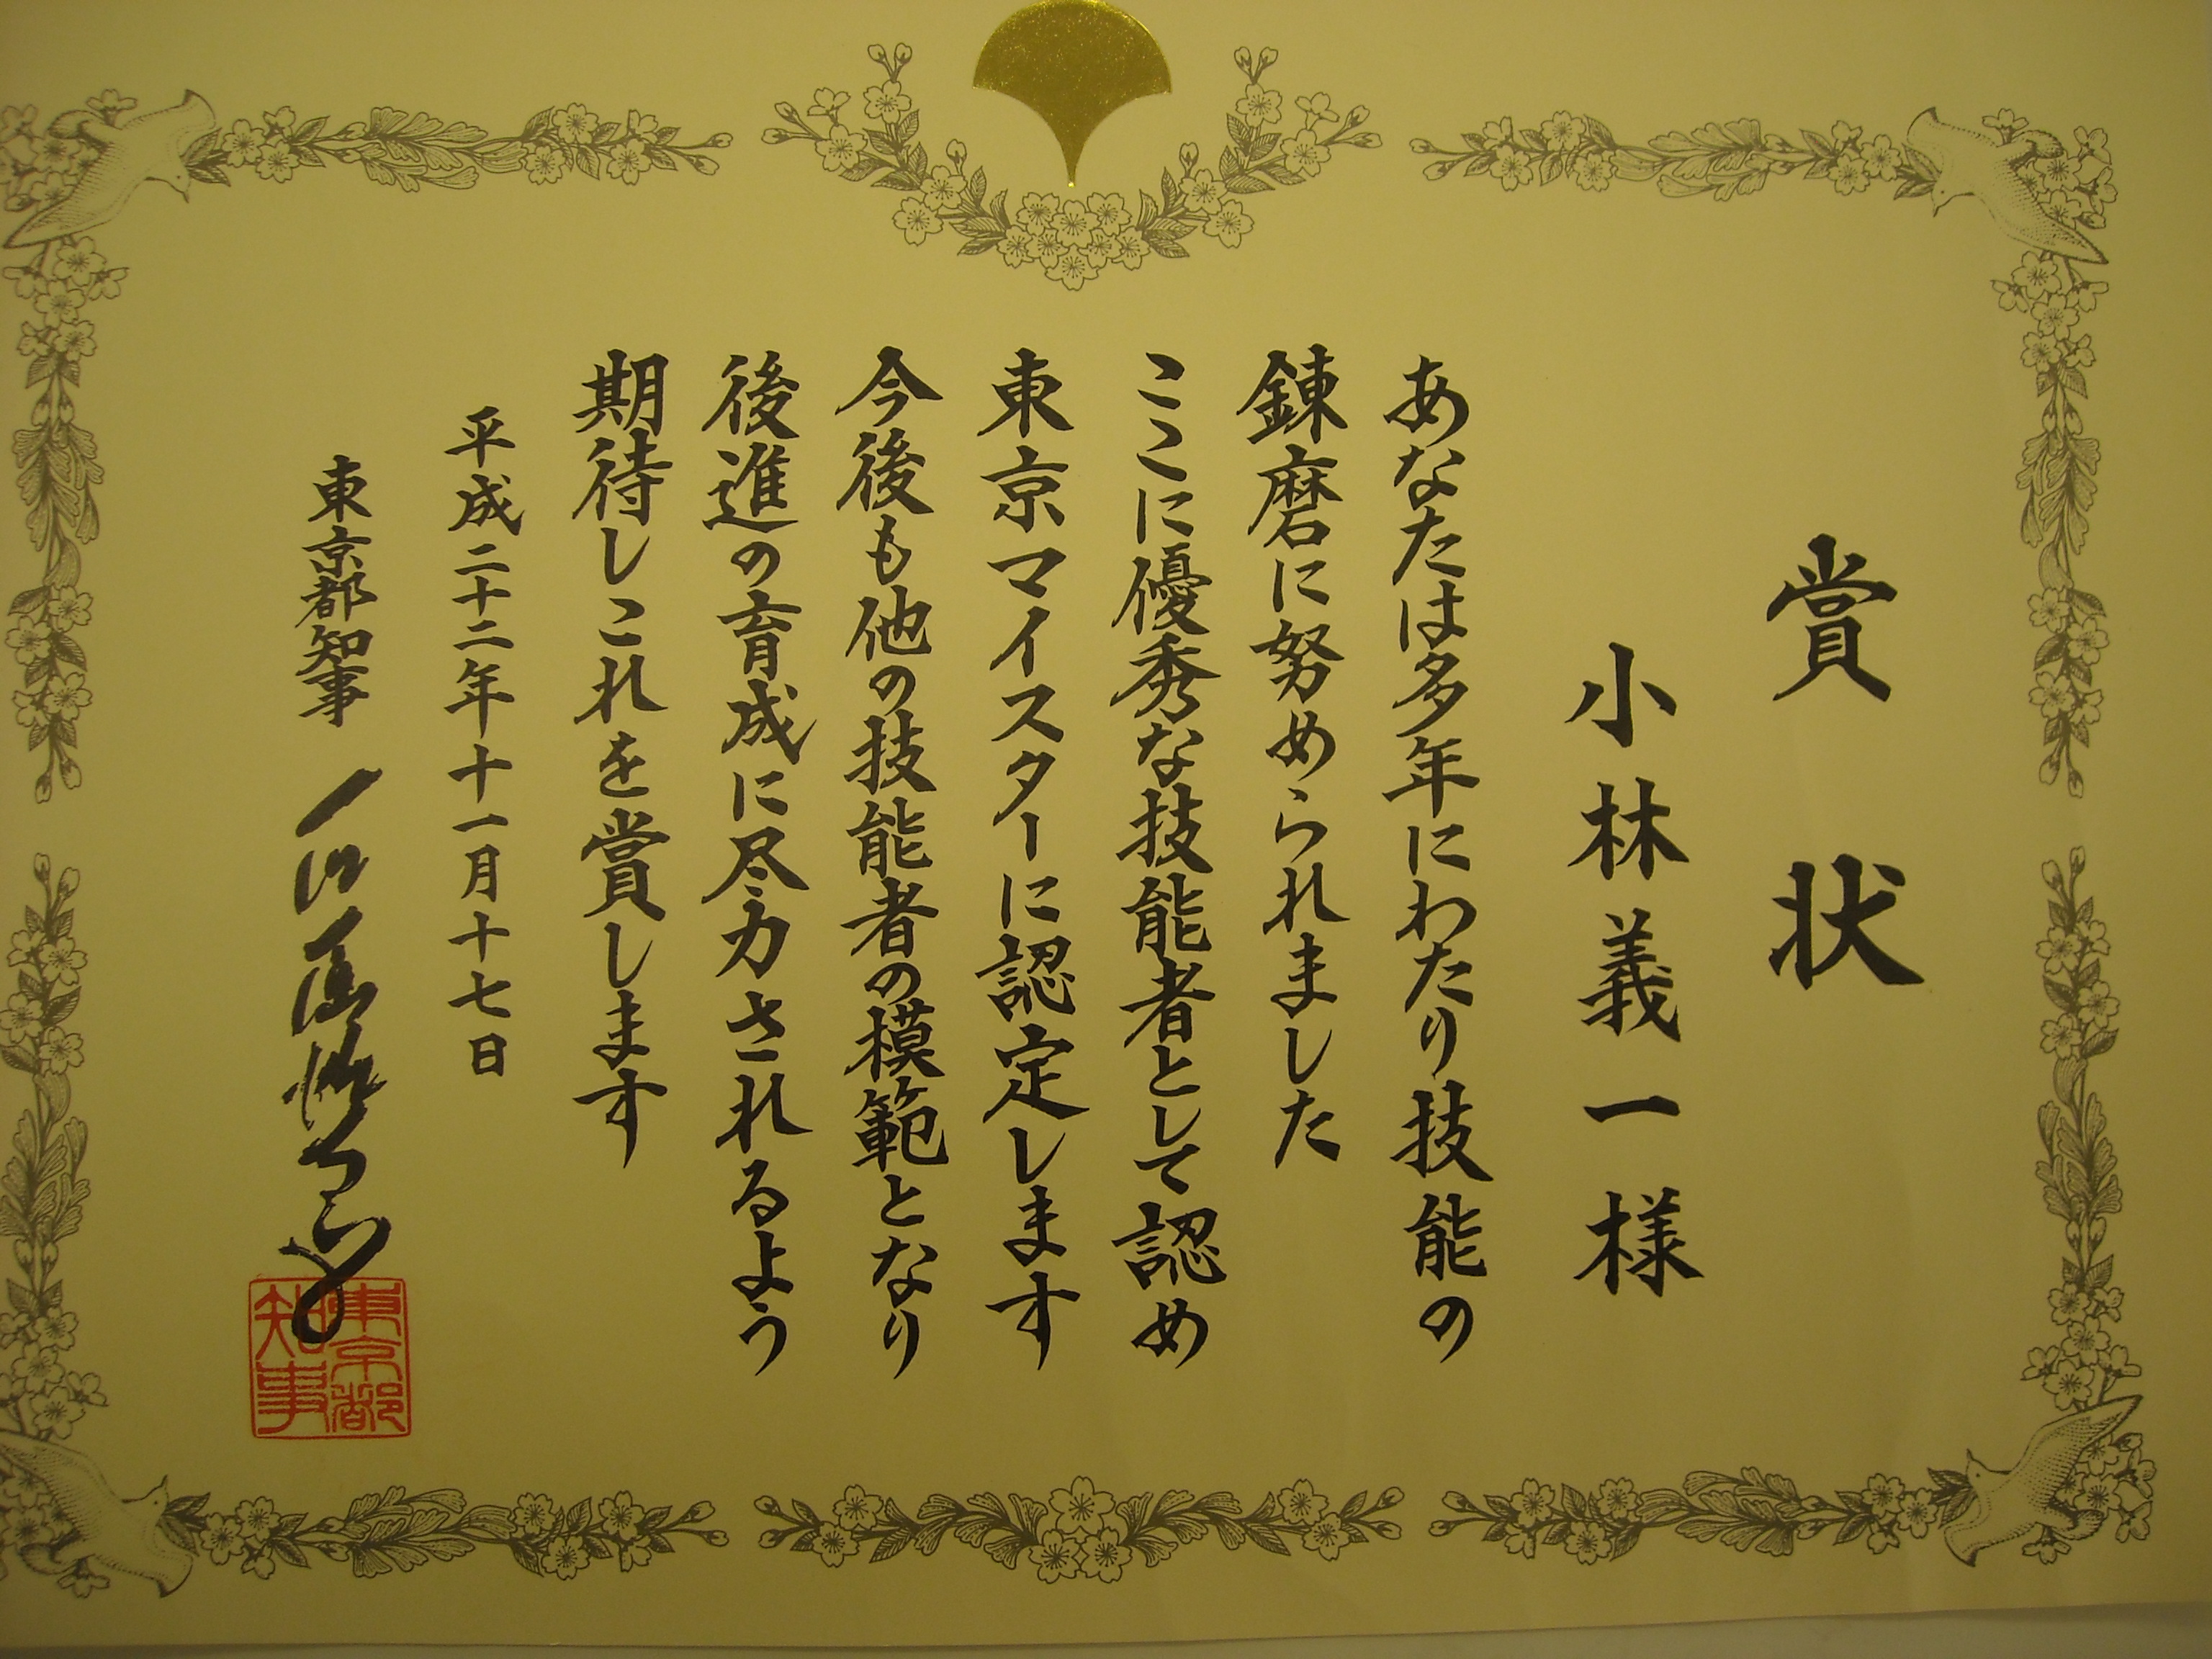 賞状
小林義一様
あなたは多年にわたり技能の
錬磨に努められました
ここに優秀な技能者として認め
東京マイスターに認定します
今後も他の技能者の模範となり
後進の育成に尽力されるよう
期待しこれを賞します
平成二十二年十一月十七日
東京都知事
東京都
知事